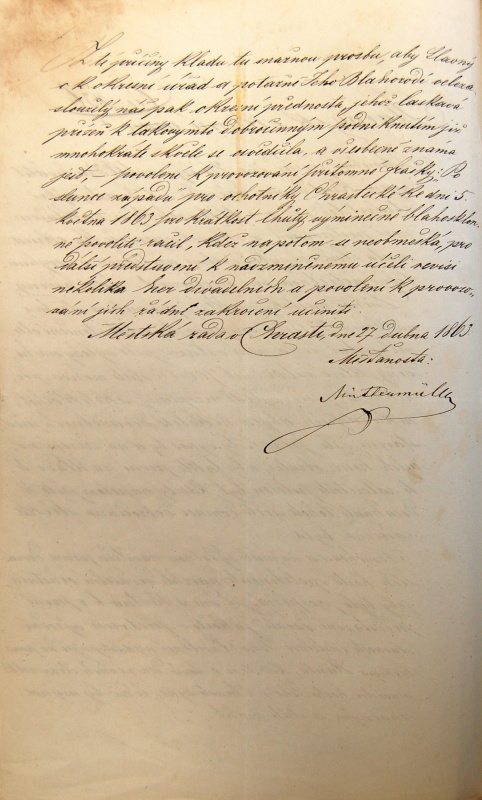 Z té příčiny kladu tu snažnou prosbu, aby Slavný
c k okresní úřad a potažně Jeho Blahorodí veleza
sloužilý náš pak okresní přednosta, jehož laskavá
přízeň k takovýmto dobročinným podniknutím již
mnohokráte skvěle se osvědčila, a všeobecně známa
jest, – povolení k provozování přítomné frašky: Po
slunce západu pro ochotníky Chrastecké ke dni 5.
května 1863 pro krátkost lhůty výminečně blahosklon-
ně povoliti račil, kdež na potom se neobmešká, pro
další představení k nadzmíněnému účeli revisi
několika her divadelních a povolení k provozo-
vání jich žádné zakročení učiniti.
Městská rada v Chrasti, dne 27 dubna 1863.
Měšťanosta: